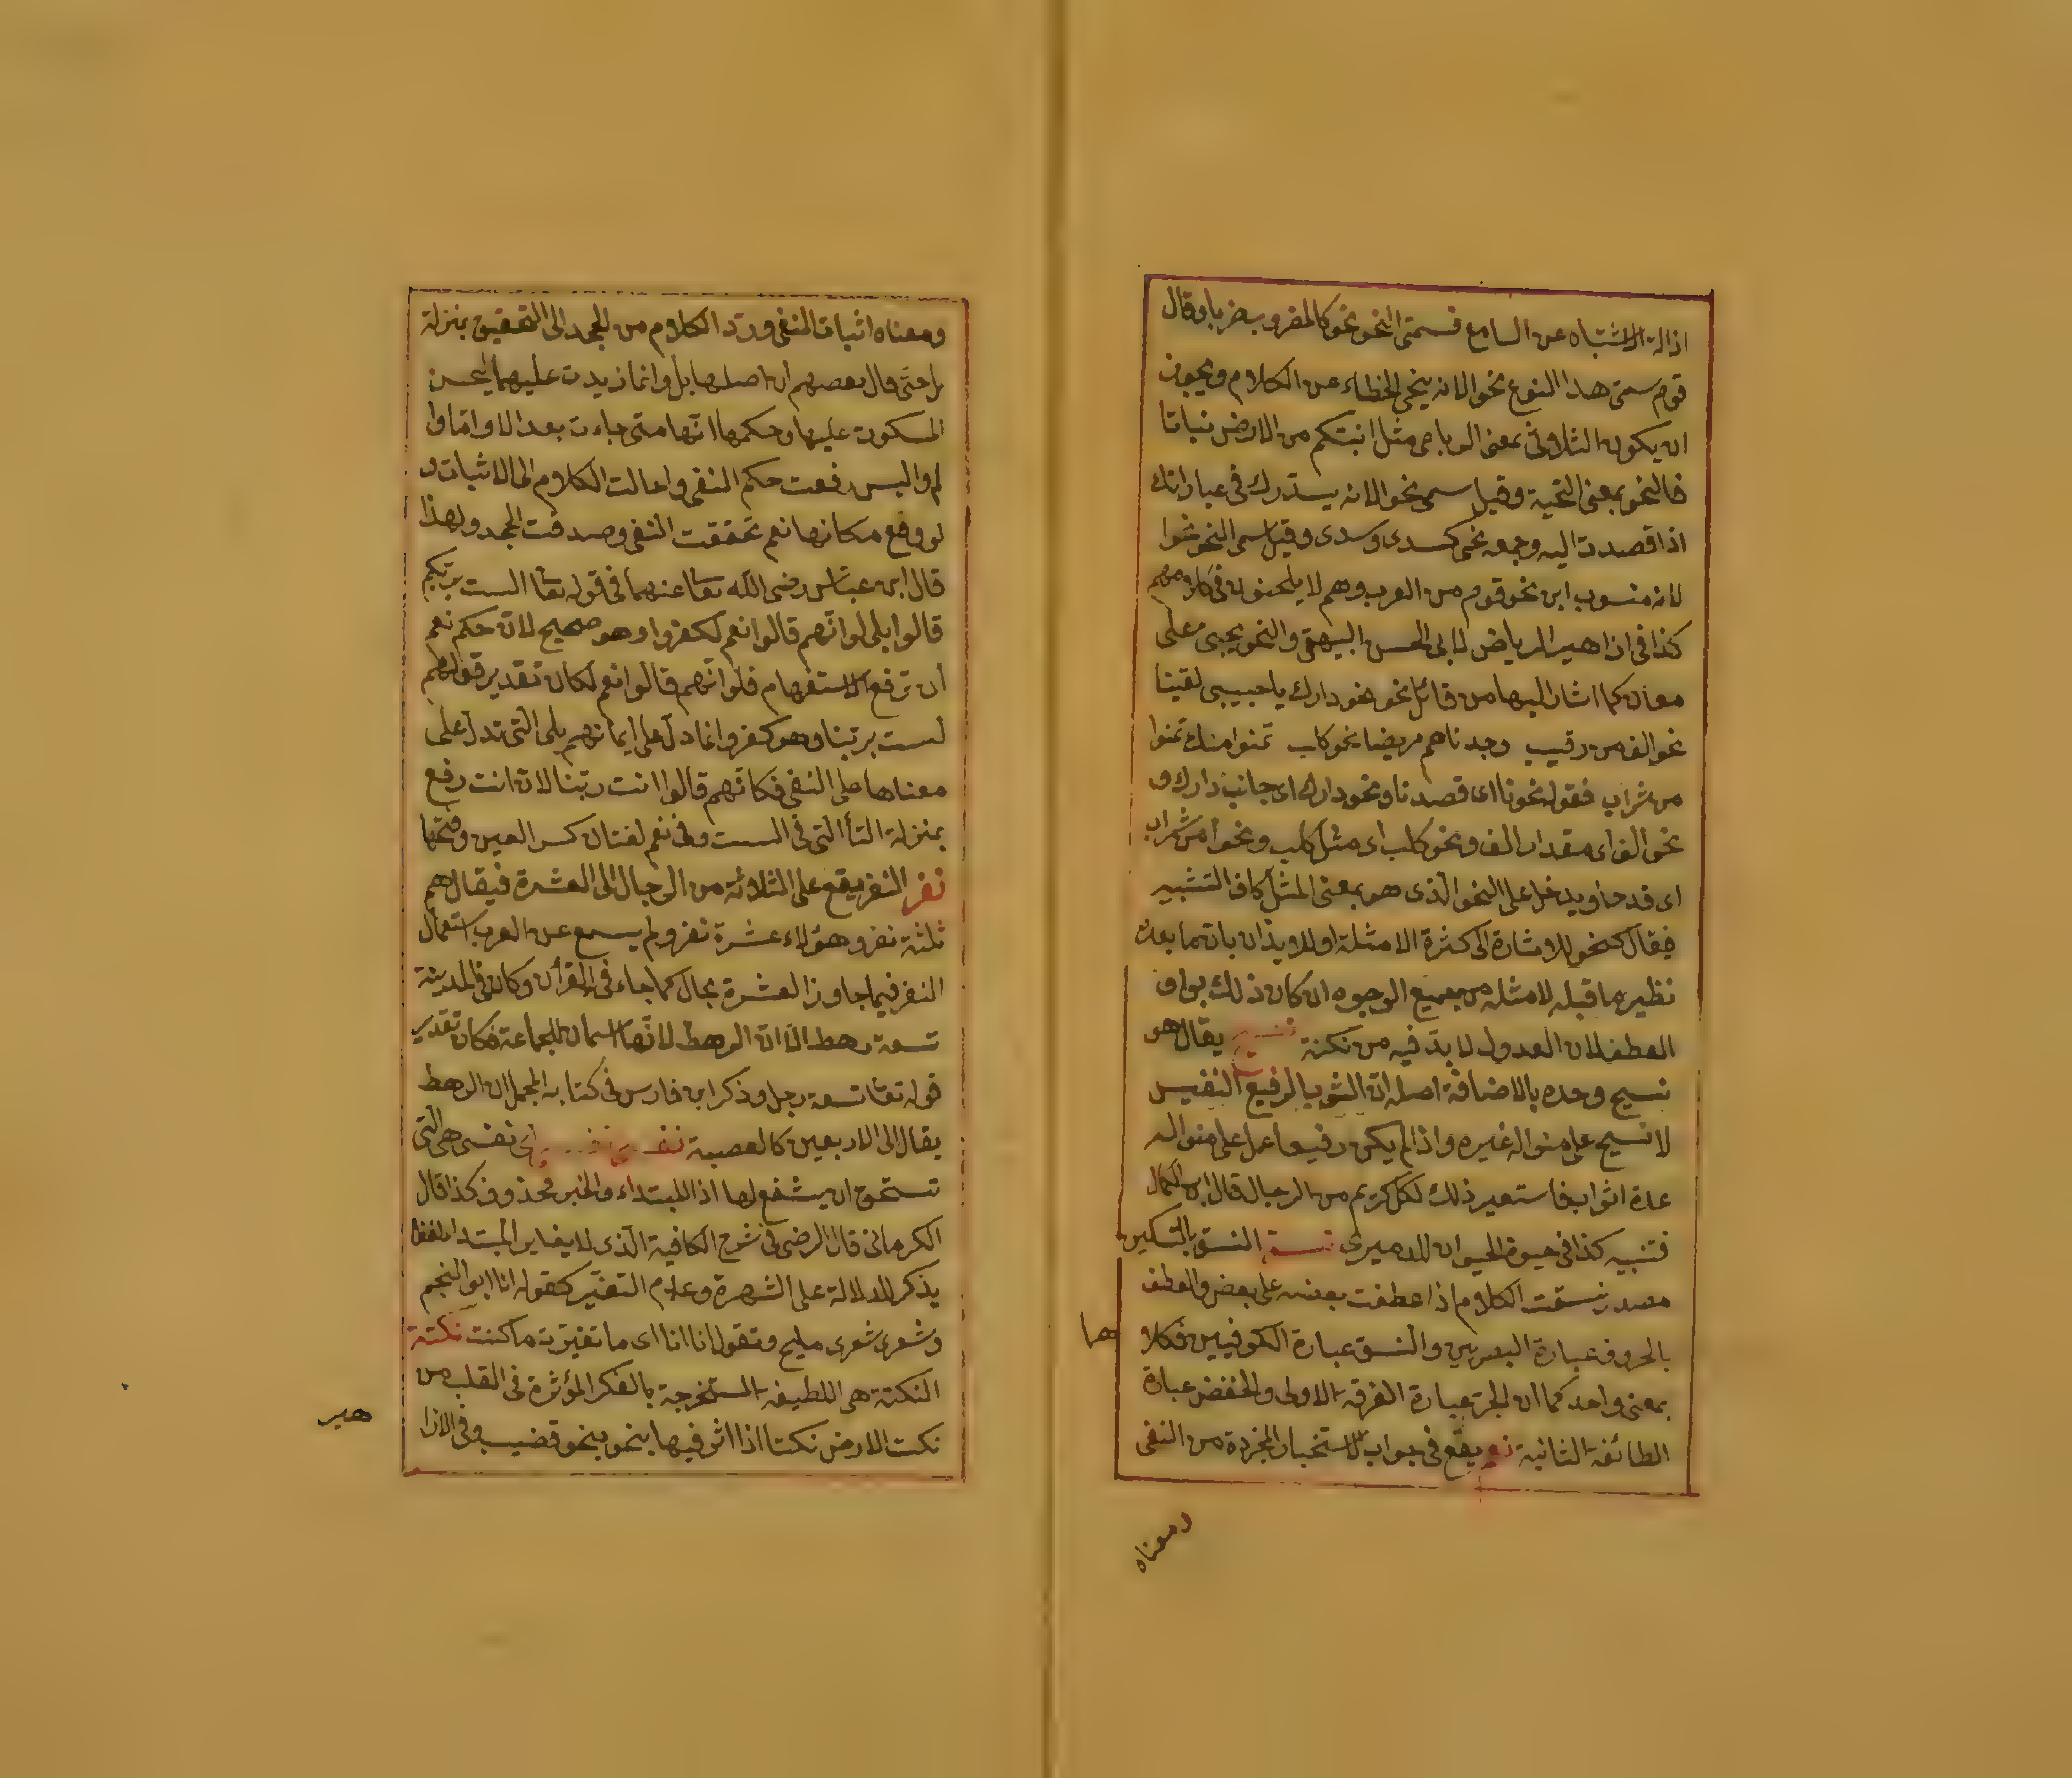 ازالة الاشتباه عن السامع فسمى النحو نحو كالمضروب ضربا وقال
قوم سمى هذا النوع نحوا لانه ينحى الخطاء عن الكلام ويجوز
ان يكون الثلاثى بمعنى الرباعى مثل انبتكم من الارض نباتا
فالنحو بمعنى التحية وقيل سمى نحوا لانه يستدرك فى عباراتك
اذا قصدت اليه وجمعه نحى كسدى وسدى وقيل سمى النحو نحوا
لانه منسوب ابن نحو قوم من العرب وهم لا يلحنون فى كلامهم
كذا فى ازاهير الرياض لابى الحسن البيهقى والنحو يجيئ على
معان كما اشار اليها من قائل نحو نحو دارك يا حبيبى لقينا
نحو الف من رقيب وجدناهم مريضا نحو كلب تمنوا منك تمنوا
من شراب فقوله نحونا اى قصدنا ونحو دارك اى جانب دارك و
نحو الف اى مقدار الف ونحو كلب اى مثل كلب ونحوا من شراب
اى قدحا ويدخل على النحو الذى هو بمعنى المثل كاف التشبيه
فيقال كنحو للاشارة الى كثرة الامثلة او للايذان بان ما بعده
نظير ما قبله لا مثله من جميع الوجوه ان كان ذلك بواو
العطف لان العدول لا بد فيه من نكتة نسيج يقال هو
نسيج وحده بالاضافة اصله ان الثوب الرفيع النفيس
لا نسيج على منواله غيره واذا لم يكن رفيعا عمل على منواله
عدة اثواب فاستعير ذلك لكل كريم من الرجال قال ابن الكمال
فتنبيه كذا فى حيوة الحيوان للدميرى نسق النسق بالتسكين
مصدر نسقت الكلام اذا عطفت بعضه على بعض والعطف
بالحروف عبارة البصريين والنسق عبارة الكوفيين فكلا
هما
بمعنى واحد كما ان الجر عبارة الفرقة الاولى والخفض عبارة
الطائفة الثانية نعم يقع فى جواب الاستخبار المجردة من النفى
ومعناه
ومعناه اثبات المنفى ورد الكلام من الجحد الى التحقيق بمنزلة
بل حتى قال بعضهم ان اصلها بل وانما زيدت عليهما ليحسن
السكوت عليها وحكمها انها متى جاءت بعد الا واما وا
لم واليس رفعت حكم النفى واحالت الكلام الى الاثبات و
لو وقع مكانها نعم تحققت النفى وصدقت الجحد ولهذا
قال ابن عباس رضى الله تعا عنهما فى قوله تعا الست بربكم
قالوا بلى لو انهم قالوا نعم لكفروا وهو صحيح لان حكم نعم
ان ترفع الاستفهام فلو انهم قالوا نعم لكان تقدير قولهم
لست بربنا وهو كفر وانما دل على ايمانهم بلى التى تدل على
معناها على النفى فكانهم قالوا انت ربنا لان انت رفع
بمنزلة التأ التى فى الست وفى نعم لغتان كسر العين وفتحها
نفر النفر يقع على الثلاثة من الرجال الى العشرة فيقال هم
ثلثة نفر وهؤلاء عشرة نفر ولم يسمع عن العرب استعمال
النفر فيما جاوز العشرة بحال كما جاء فى القرأن وكان فى المدينة
تسعة رهط الا ان الرهط لانها اسمان للجماعة فكان تقدير
قوله تعا تسعة رجل وذكر ابن فارس فى كتابه المجمل ان الرهط
يقال الى الاربعين كالعصبة نفسى نفسى اى نفسى هى التى
تستحق ان يشفع لها اذا المبتداء والخبر محذوف كذا قال
الكرمانى قال الرضى فى شرح الكافية الذى لا يغاير المبتدا لفظا
يذكر للدلالة على الشهرة وعدم التغير كقوله انا ابو النجم
وشعرى شعرى مليح وتقول انا انا اى ما تغيرت ما كنت نكتة
النكتة هى اللطيفة المستخرجة بالفكر المؤثرة فى القلب من
نكت الارض نكتا اذا اثر فيها بنحو بنحو قضيب وفى الازا
هير